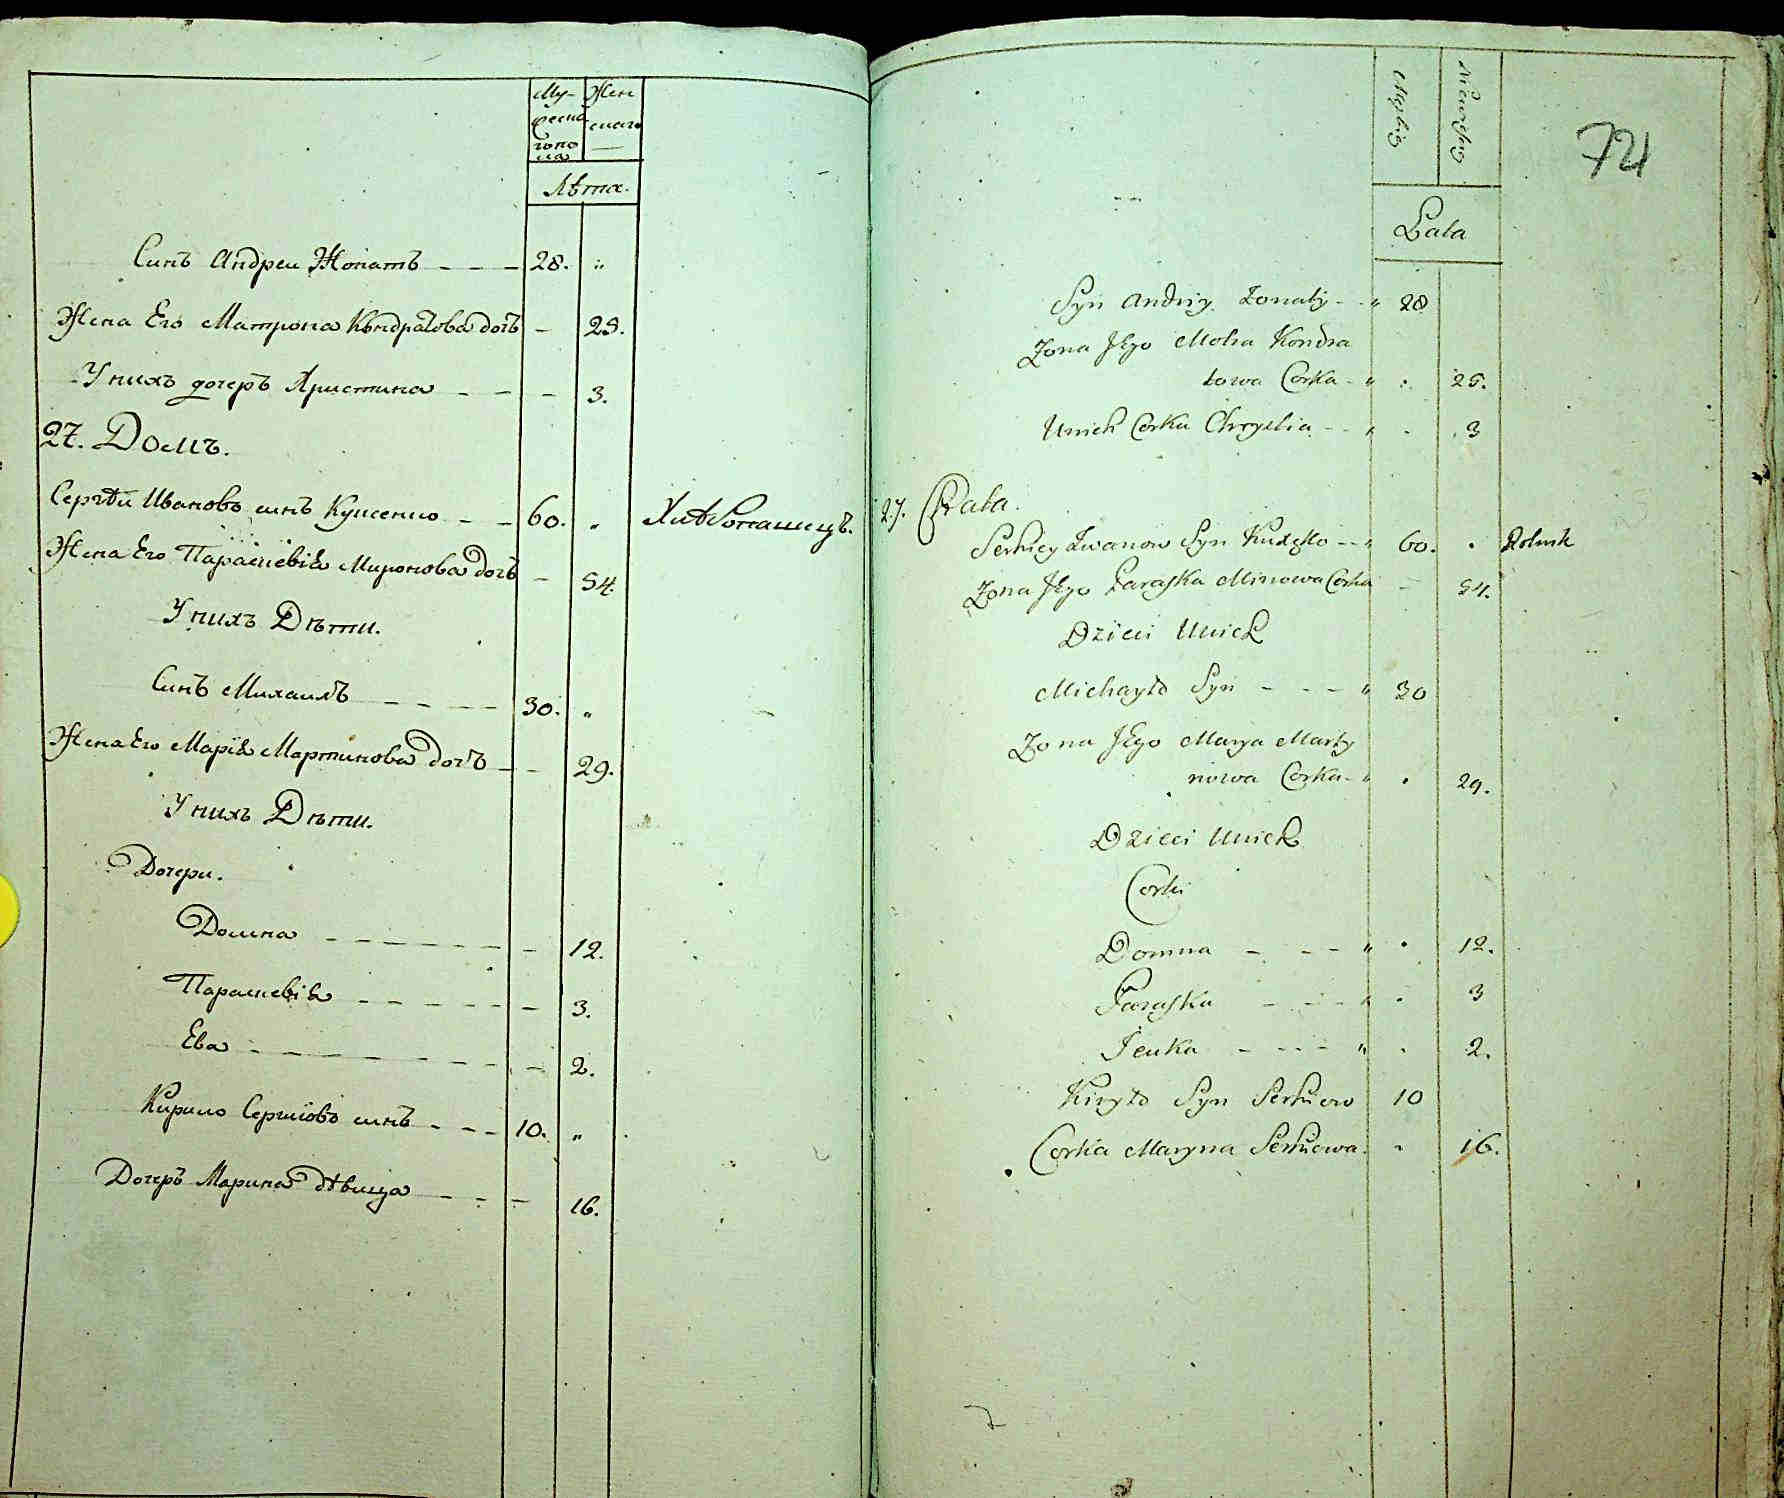 Му-
Жен
ска
скаго
гопо
ла
Лѣта.
Синъ Андреи Жонатъ 28. "
Жена Его Матрона Кондратова дочъ — 25.
Унихъ дочеръ Христина — 3.
27. Домъ.
Сергѣй Ивановъ синъ 60. "
Жена Его Параскевія Миронова дочъ — 54.
Унихъ Дѣти.
Синъ Михаилъ 30. "
Жена Его Марія Мартинова дочъ — 29.
Унихъ Дѣти.
Дочери.
Домна — 12.
Параскевія — 3.
Ева — 2.
Кирило Сергіювъ синъ 10. "
Дочеръ Марина дѣвица — 16.
72
Lata
Syn Andriy Zonaty " 28
Zona Jego Motra Kondra
towa Corka " . 25.
Unich Corka Chrystia " . 3
27. Chata.
Serhiey Iwanow Syn 60. . Rolnik
Zona Jego Paraska Minowa Corka — 54.
Dzieci Unich
Michayło Syn " 30
Zona Jego Marya Marty
nowa Corka " . 29.
Dzieci Unich
Corki
Domna " . 12.
Paraska " . 3
Jeuka " . 2.
Kiryło Syn Serhiow 10
Corka Maryna Serhiowa . 16.